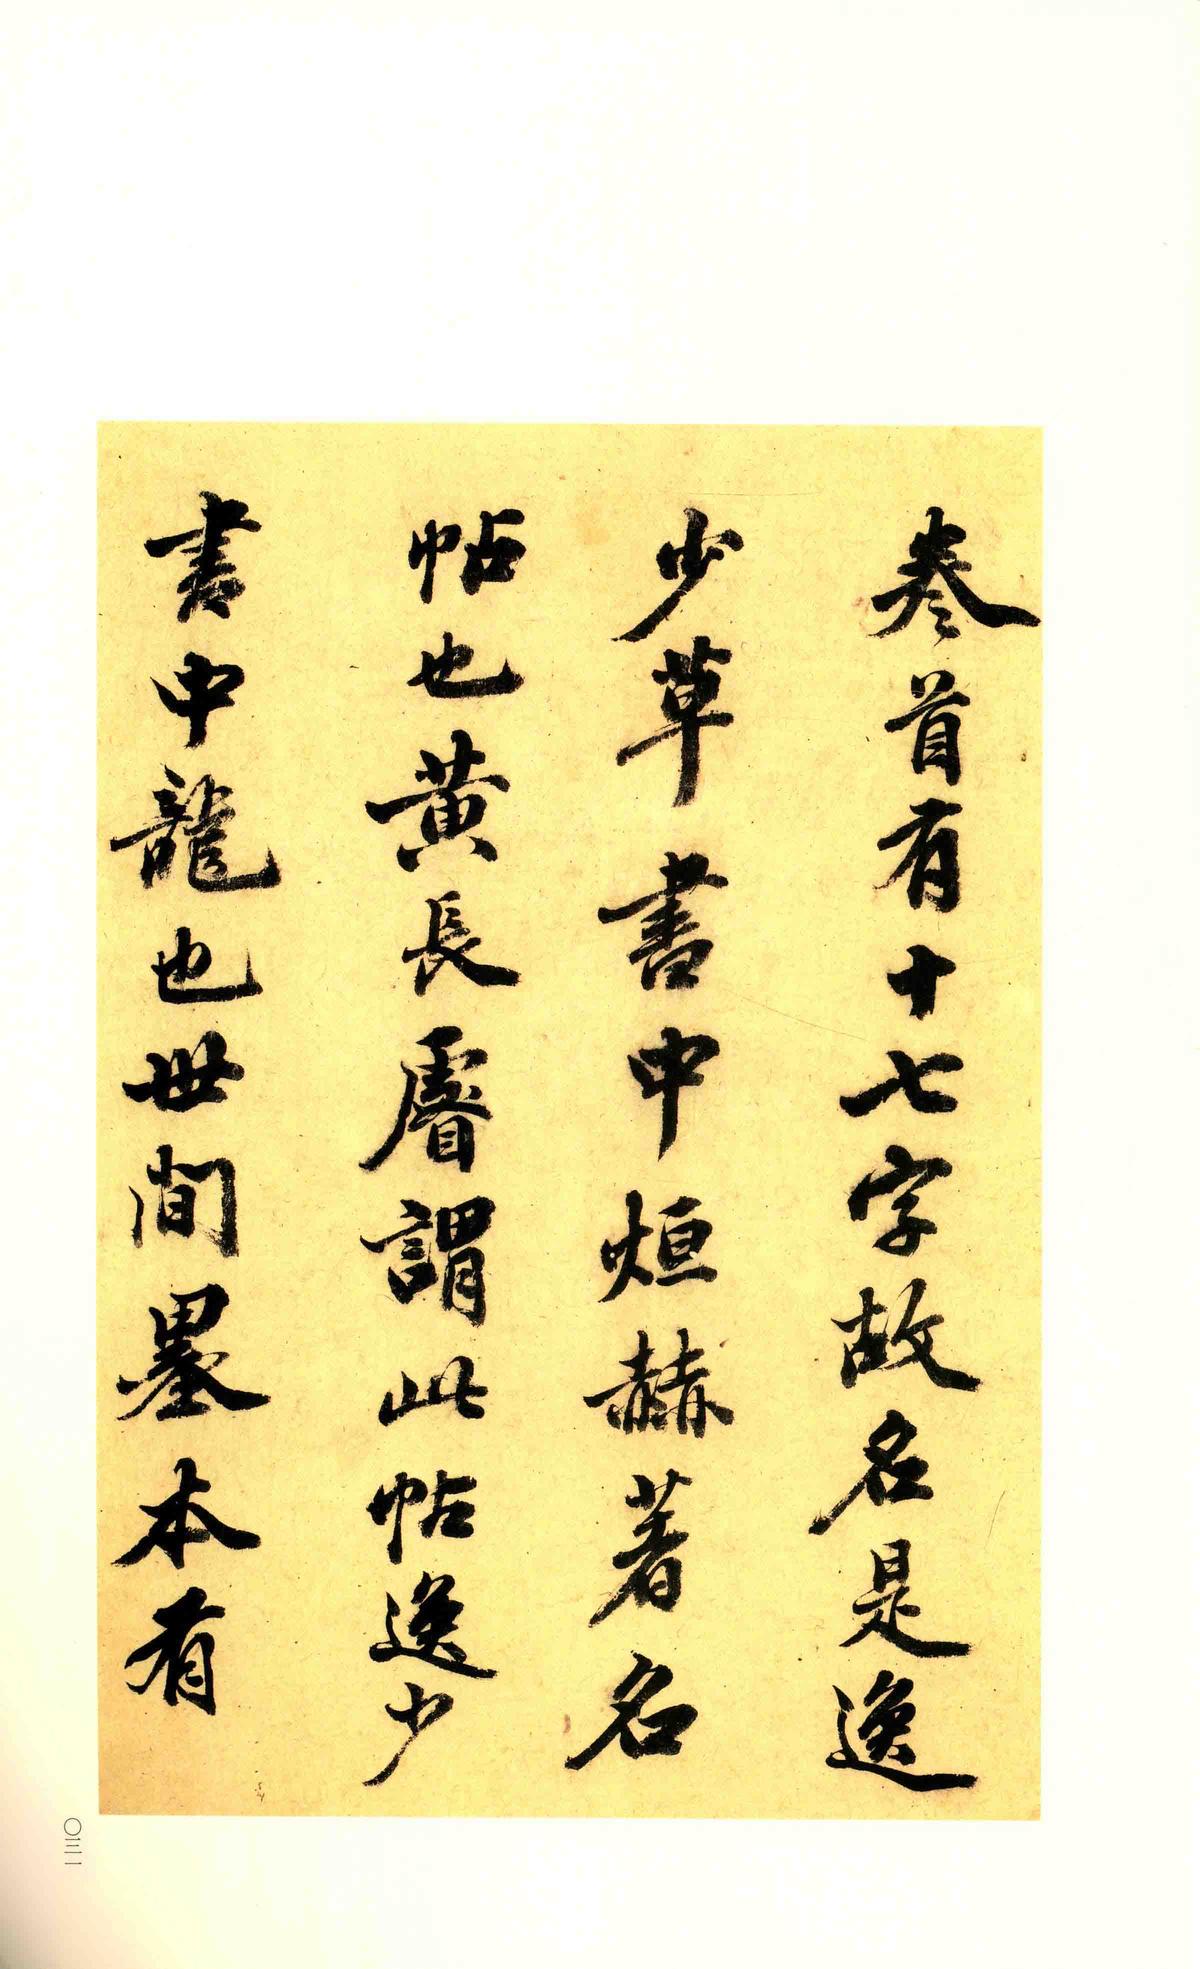 卷首有十七字故名是逸
少草書中烜赫著名
帖也黃長睿謂此帖逸少
書中龍也世間墨本有
〇三二